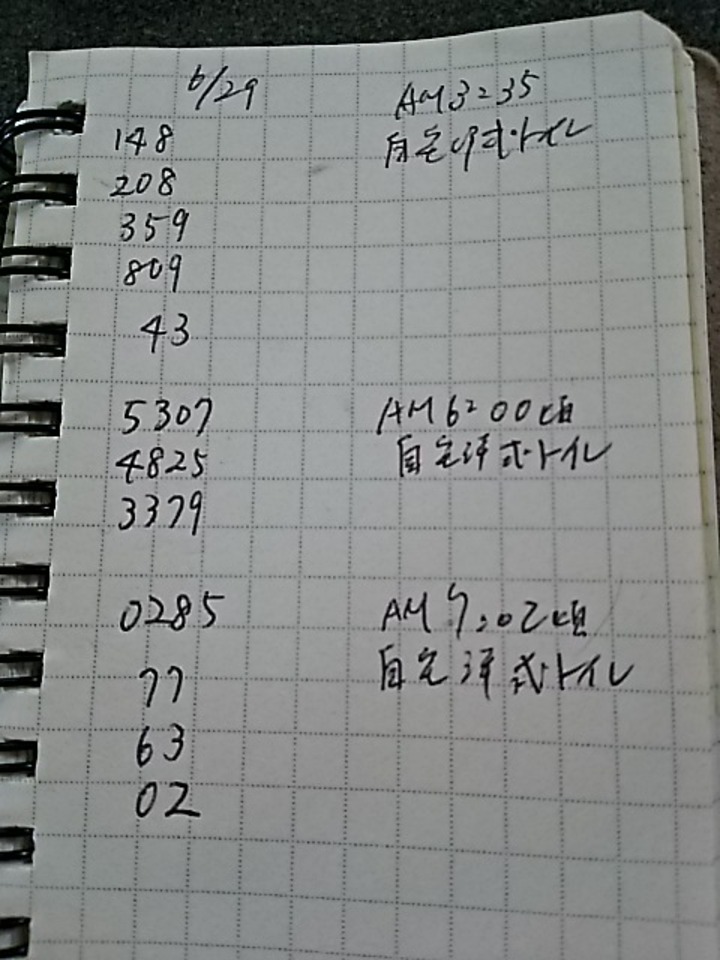 6/29
AM3:35
148
自宅洋式・トイレ
208
359
809
43
5307
AM6:00頃
4825
自宅洋式・トイレ
3379
0285
AM7:02頃
77
自宅洋式・トイレ
63
02